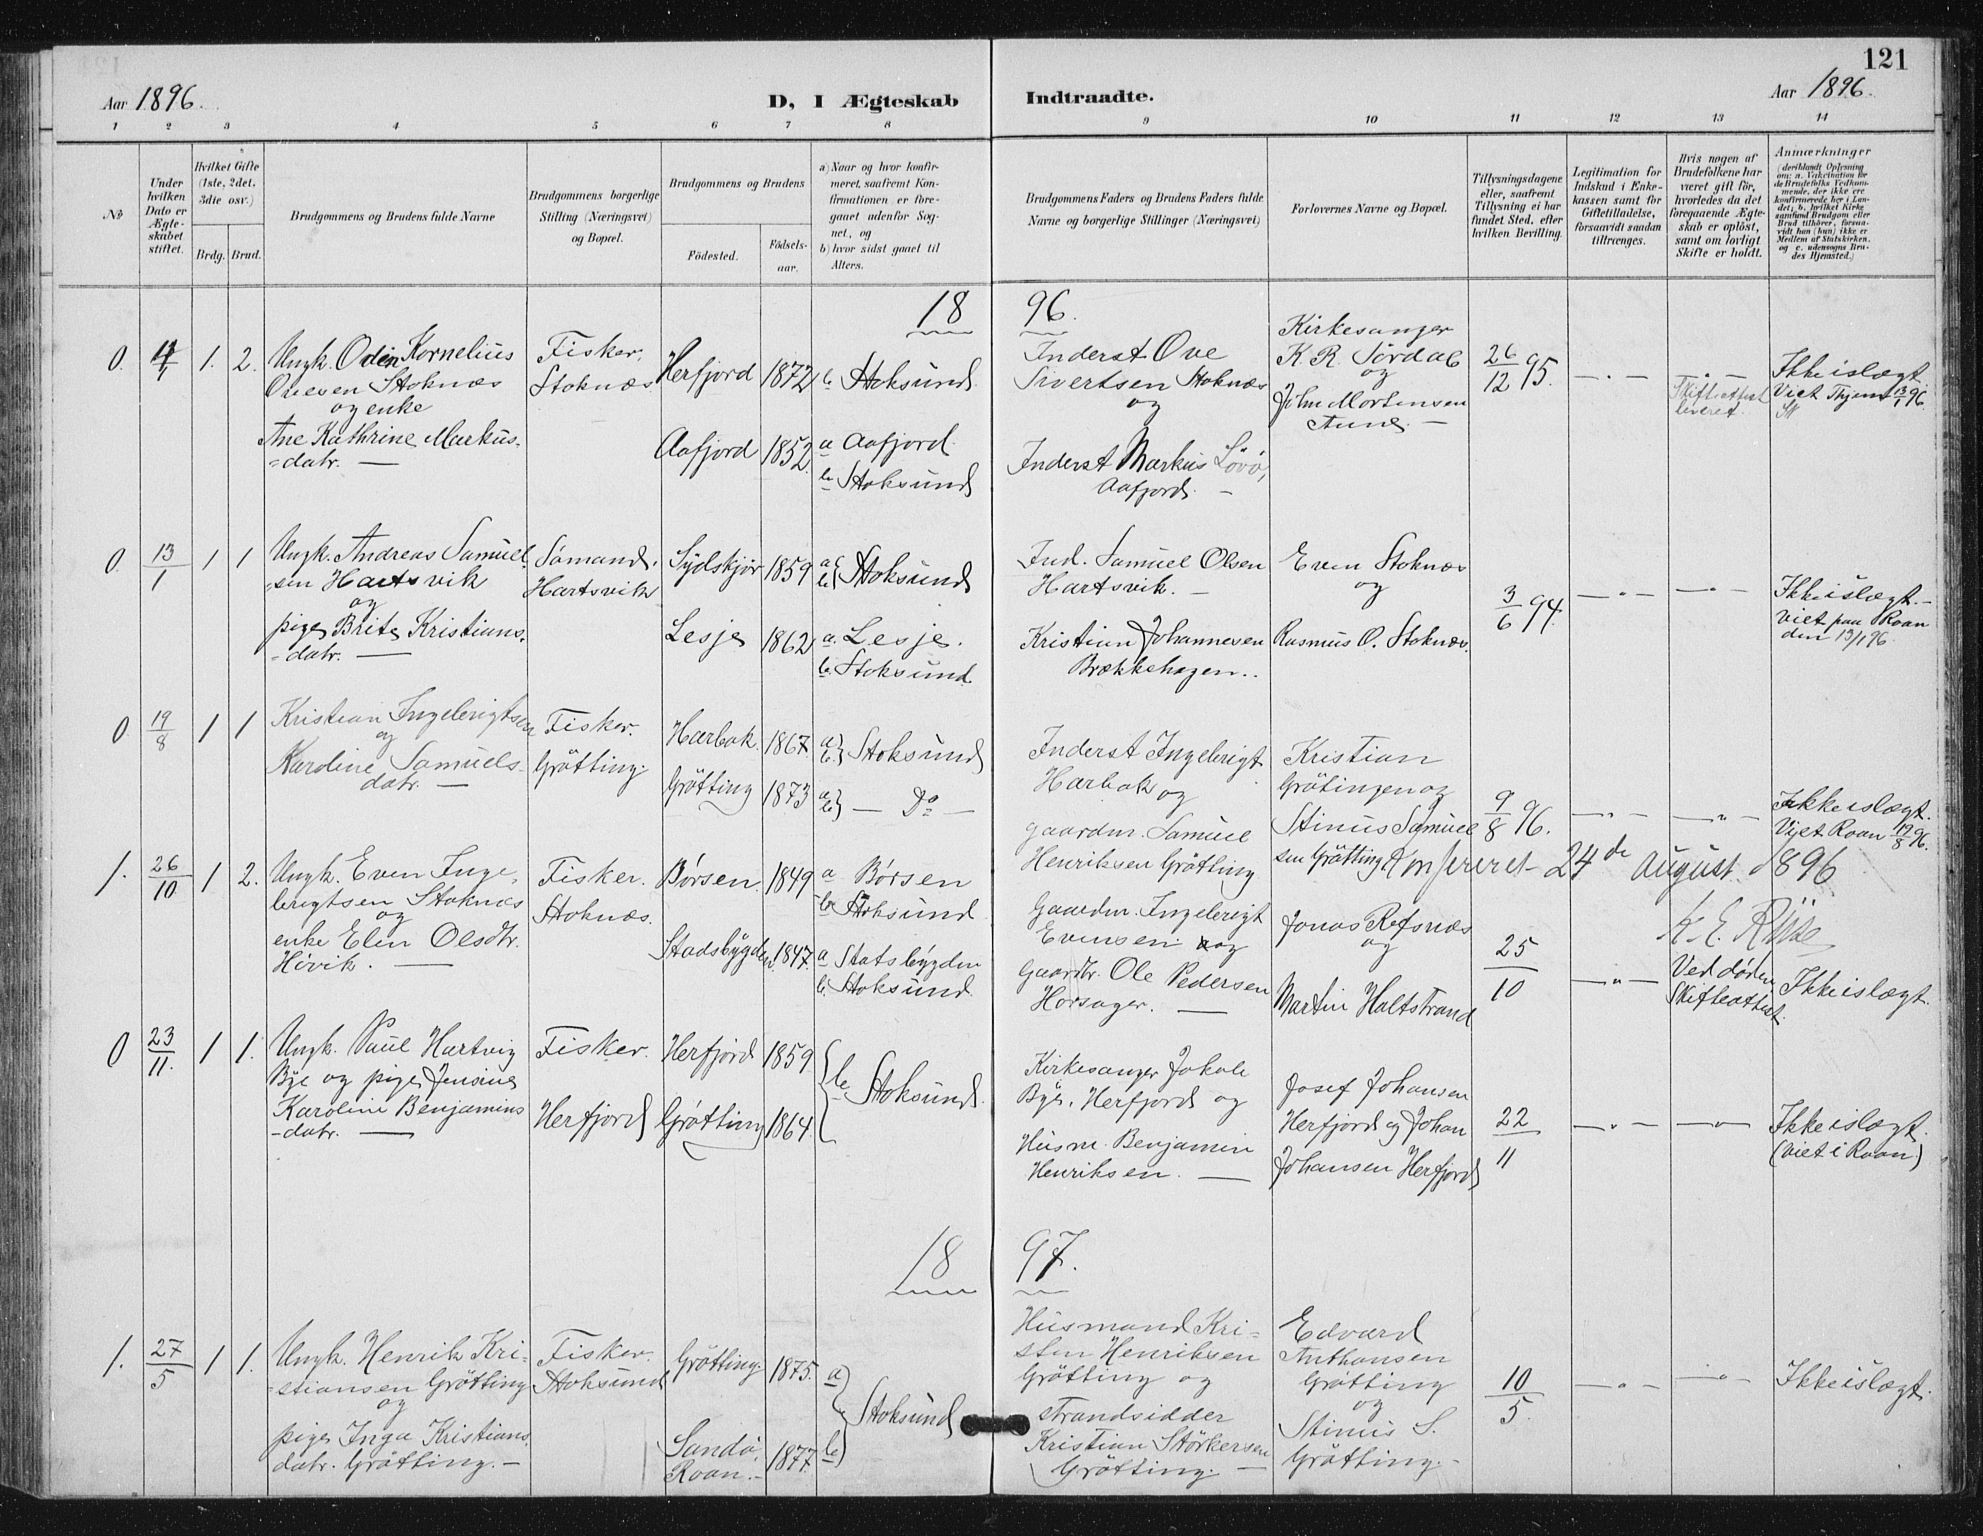 121
Aar 1896.
D, I Ægteskab
Indtraadte.
Aar 1896.
1 2 3 4 5 6 7 8 9 10 11 12 13 14
No
Under hvilken Dato er Ægteskabet stiftet.
Hvilket Gifte (1ste, 2det, 3die osv.)
Brdg. Brud.
Brudgommens og Brudens fulde Navne
Brudgommens borgerlige Stilling (Næringsvei) og Bopæl.
Brudgommens og Brudens
Födested.
Födsels-aar.
a) Naar og hvor konfirmeret, saafremt Konfirmationen er foregaaet udenfor Sognet, og
b) hvor sidst gaaet til Alters.
Brudgommens Faders og Brudens Faders fulde Navne og borgerlige Stillinger (Næringsvei)
Forlovernes Navne og Bopæl.
Tillysningsdagene eller, saafremt Tillysning ei har fundet Sted, efter hvilken Bevilling.
Legitimation for Indskud i Enkekassen samt for Giftetilladelse, forsaavidt saadan tiltrænges.
Hvis nogen af Brudefolkene har været gift för, hvorledes da det foregaaende Ægteskab er oplöst, samt om lovligt Skifte er holdt.
Anmærkninger
(deriblandt Oplysning om: a. Vakcination for de Brudefolks Vedkommende, der ikke ere konfirmerede her i Landet; b. hvilket Kirkesamfund Brudgom eller Brud tilhörer, forsaavidt han (hun) ikke er Medlem af Statskirken, og c. udensogns Brudes Hjemsted.)
18 96.
0. 1. 2.
Ungk. Odin Kornelius
Ovesen Stoknæs
og enke
Ane Kathrine Markus-
=datr. —
Fisker.
Stoknæs
Herfjord 1872 b. Stoksund.
Aafjord 1852 a Aafjord.
b Stoksund
Inderst Ove
Sivertsen Stoknæs
og
Inderst Markus Lövö,
Aafjord. —
Kirkesanger
K R. Sørdal
og
John Mortensen
Aune. —
26/12 95.
Skifteattest
leveret.
Ikke i slægt.
Viet hjem 13/1 96.
0. 13/1 1 1
Ungk. Andreas Samuel-
sen Hartsvik
og
pige Brite Kristians-
=datr. —
Sömand.
Hartsvik
Sydskjör 1859 a b Stoksund
Lesje 1862 a. Lesje.
b. Stoksund.
Ind. Samuel Olsen
Hartsvik. —
Kristian Johannesen
Brækkehagen..
Even Stoknæs
og
Rasmus O. Stoknæs.
3/6 94.
Ikke i slægt. —
viet paa Roan
den 13/1 96
0. 19/8 1 1
Kristian Ingebrigtsen
og
Karoline Samuels-
datr. —
Fisker.
Gröttingy.
Harbak. 1867. a b. Stoksund
Grötting 1873 a b — Do —
Inderst Ingebrigt
Harbak og
gaardm. Samuel
Henriksen Grötting
Kristian
Grötingen og
Stinus Samuel
sen Grötting
9/8 96.
Ikke i slægt.
Viet Roan 19/8 96.
Konfereret 24de august 1896
1. 26/10 1 2.
Ungk. Even Inge-
brigtsen Stoknes
og
enke Elen Olsdtr.
Hövik. —
Fisker.
Stoknæs.
Børsen. 1849 a Børsen
b Stoksund
Stadsbygden 1847. a Statsbygden
b. Stoksund.
Gaardm. Ingebrigt
Evensen og
Gaardbr. Ole Pedersen
Horsager. —
Jonas Refsnæs
og
Martin Haltstrand
25/10
Ved döden
Skifteattest.
Ikke i slægt.
0 23/11. 1 1.
Ungk. Paul Hartvig
Bye og pige Jensine
Karoline Benjamins
-datr. —
Fisker.
Herfjord
Herfjord 1859
Grötting 1864.
b Stoksund.
Kirkesanger Jakob
Bye, Herfjord og
Husm. Benjamin
Henriksen. —
Josef Johansen
Herfjord og Johan
Johansen Herfjord
22/11
Ikke i slægt.
(Viet i Roan)
18 97.
1. 27/5 1 1.
Ungk. Henrik Kri-
=stiansen Grötting
og
pige Inga Kristians-
datr. Grötting. —
Fisker.
Stoksund
Grötting. 1875. a
Sandö, 1877. b
Roan. —
Stoksund
Husmand Kri-
sten Henriksen
Grötting og
strandsidder
Kristian Störkersen
Grötting. —
Edvard
Anthonsen
Grötting
og
Stinus S.
Grötting. —
10/5.
Ikke i slægt.